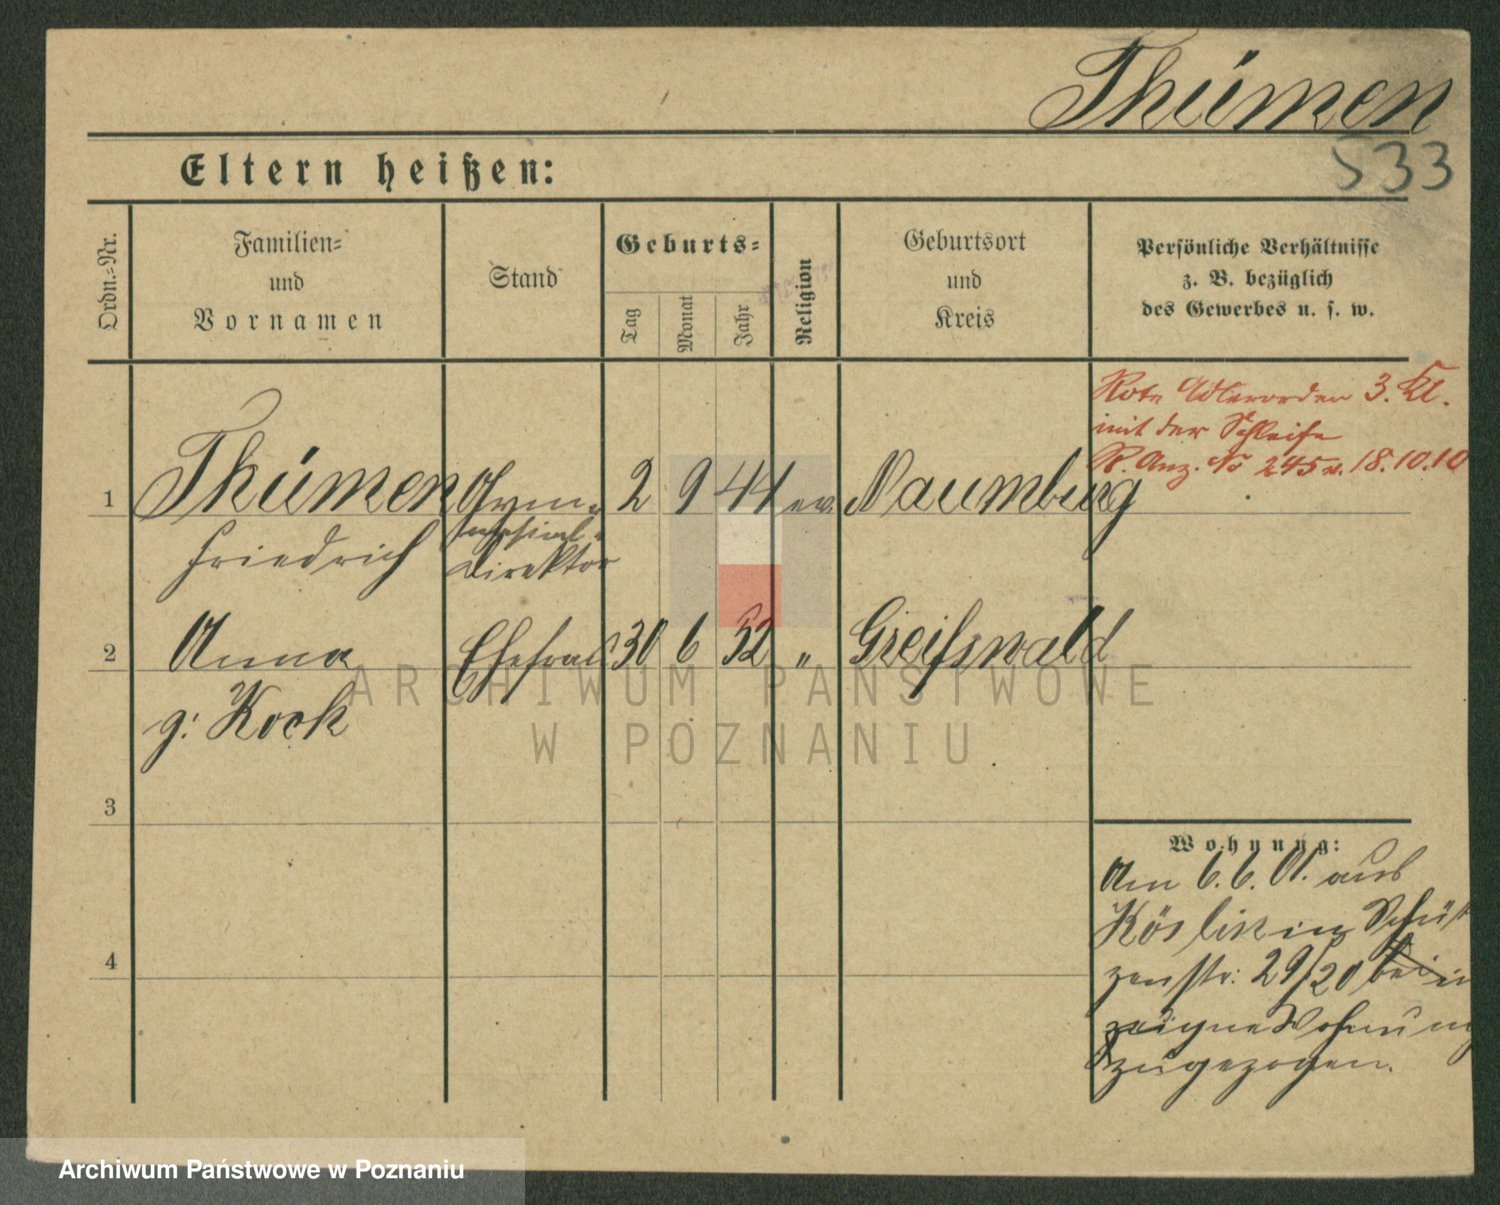 Thümen
533
Eltern heißen:
Ordn.-Nr.
Familien-
und
Vornamen
Stand
Geburts-
Tag
Monat
Jahr
Religion
Geburtsort
und
Kreis
Persönliche Verhältnisse
z. B. bezüglich
des Gewerbes u. s. w.
Rote Adlerorden 3. Kl.
mit der Schleife
R. Anz. No 245 v. 18.10.10
1 Thümen Gym- 2 9 44 ev. Naumburg
Friedrich nasial-
Direktor
2 Anna Ehefrau 30 6 52 „ Greifswald
g: Kock
3
4
Wohnung:
Am 6.6.01. aus
Köslin in Schüt
zenstr: 29/20 bei in
eigne Wohnung
zugezogen.
ARCHIWUM PAŃSTWOWE
W POZNANIU
Archiwum Państwowe w Poznaniu